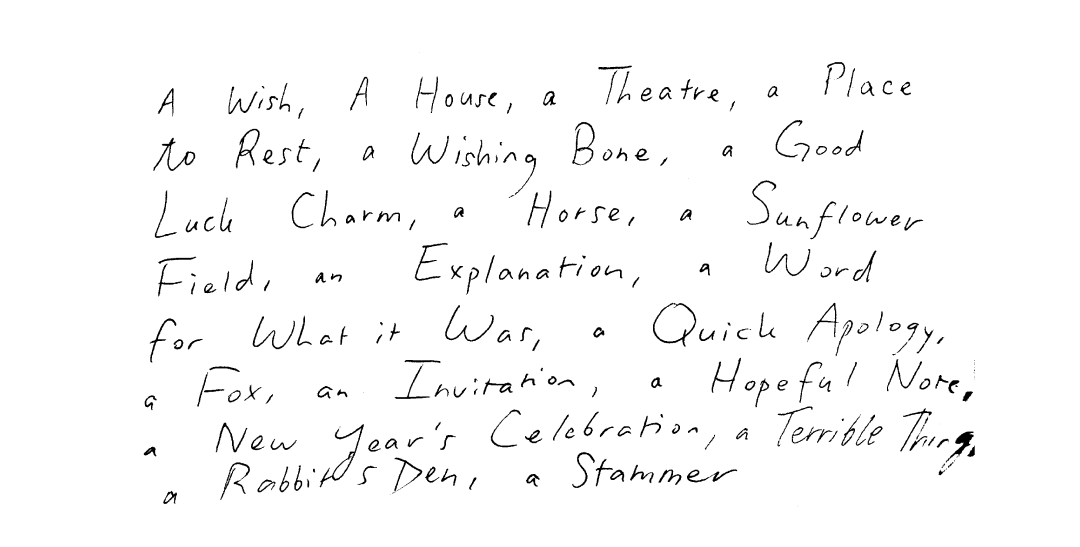 A Wish, A House, a Theatre, a Place
to Rest, a Wishing Bone, a Good
Luck Charm, a Horse, a Sunflower
Field, an Explanation, a Word
for What it Was, a Quick Apology,
a Fox, an Invitation, a Hopeful Note,
a New Year's Celebration, a Terrible Thing,
a Rabbit's Den, a Stammer